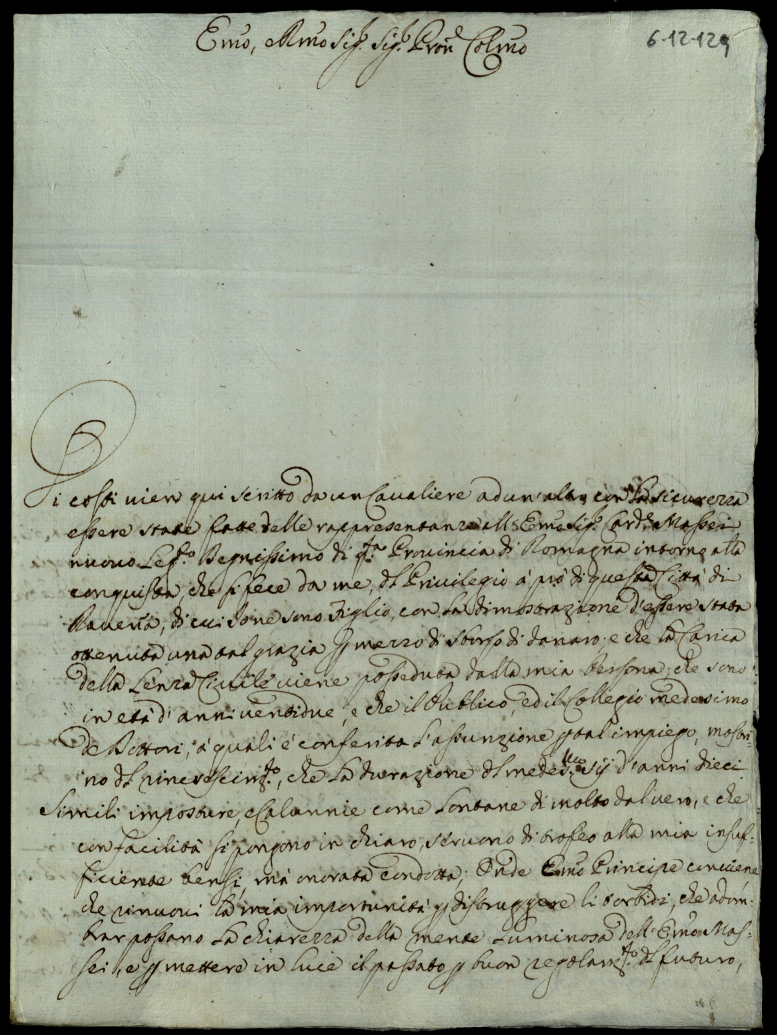 Emo, Rmo Sigr. Sigr. Pron Colmo
6-12-129
Di costì vien qui scritto da un Cavaliere ad un'altro con la sicurezza
essere state fatte delle rappresentanze all'Emo Sigr. Card. Massei
nuovo Legto. Degnissimo di qta. Provincia di Romagna intorno alla
conquista, che si fece da me, del Privilegio a prò di questa Città di
Ravenna, di cui io ne sono Figlio, con la dimostrazione d'essere stata
ottenuta una tal grazia p mezzo di sborso di danaro, e che la Carica
della Civile viene posseduta dalla mia Persona, che sono
in età d'anni ventidue, e che il Publico, ed il Collegio medesimo
de Dottori, à quali è conferita l'assunzione p tal impiego, mostri-
no del rincrescimto., che la durazione del medesimo sij d'anni dieci
Simili imposture e Calunnie come lontane di molto dal vero, e che
con facilità si pongono in chiaro, servono di trofeo alla mia insuf-
ficiente bensì, mà onorata condotta; Onde Emo Principe conviene
che rinuovi la mia importunità p distruggere li torbidi, che adom-
brar possano la chiarezza della mente luminosa dell'Emo Mas-
sei, e p mettere in luce il passato p buon regolamto. del futuro,